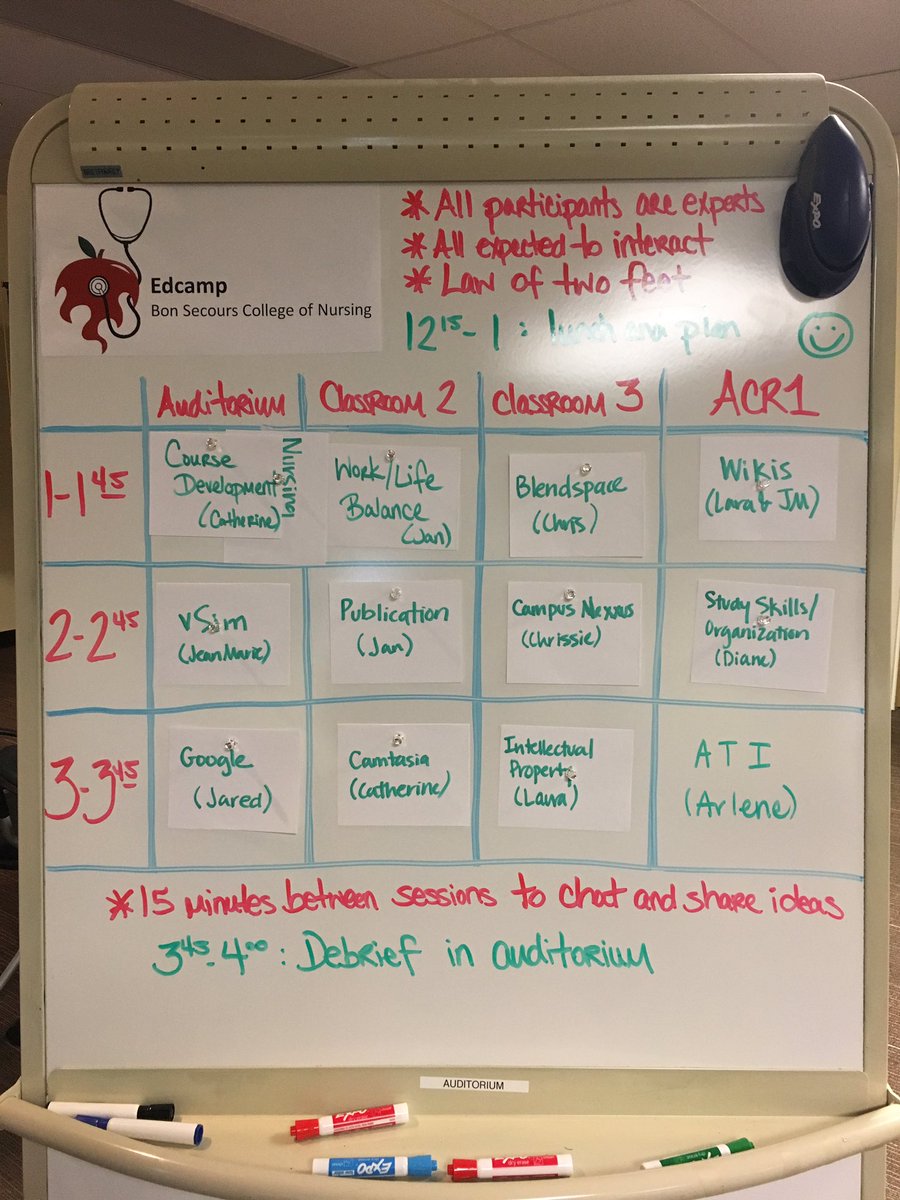 Edcamp
Bon Secours College of Nursing
* All participants are experts
* All expected to interact
* Law of two feet
12 15 - 1 : lunch and plan
EXPO
Auditorium
Classroom 2
Classroom 3
ACR1
1-1 45
Course
Development
(Catherine)
Nursing
Work/Life
Balance
(Jan)
Blendspace
(Chris)
Wikis
(Lara & JM)
2-2 45
vSim
(JeanMarie)
Publication
(Jan)
Campus Nexxus
(Chrissie)
Study Skills/
Organization
(Diane)
3-3 45
Google
(Jared)
Camtasia
(Catherine)
Intellectual
Property
(Laura)
ATI
(Arlene)
* 15 minutes between sessions to chat and share ideas
3 45 - 4 00 : Debrief in auditorium
AUDITORIUM
EXPO
dry erase